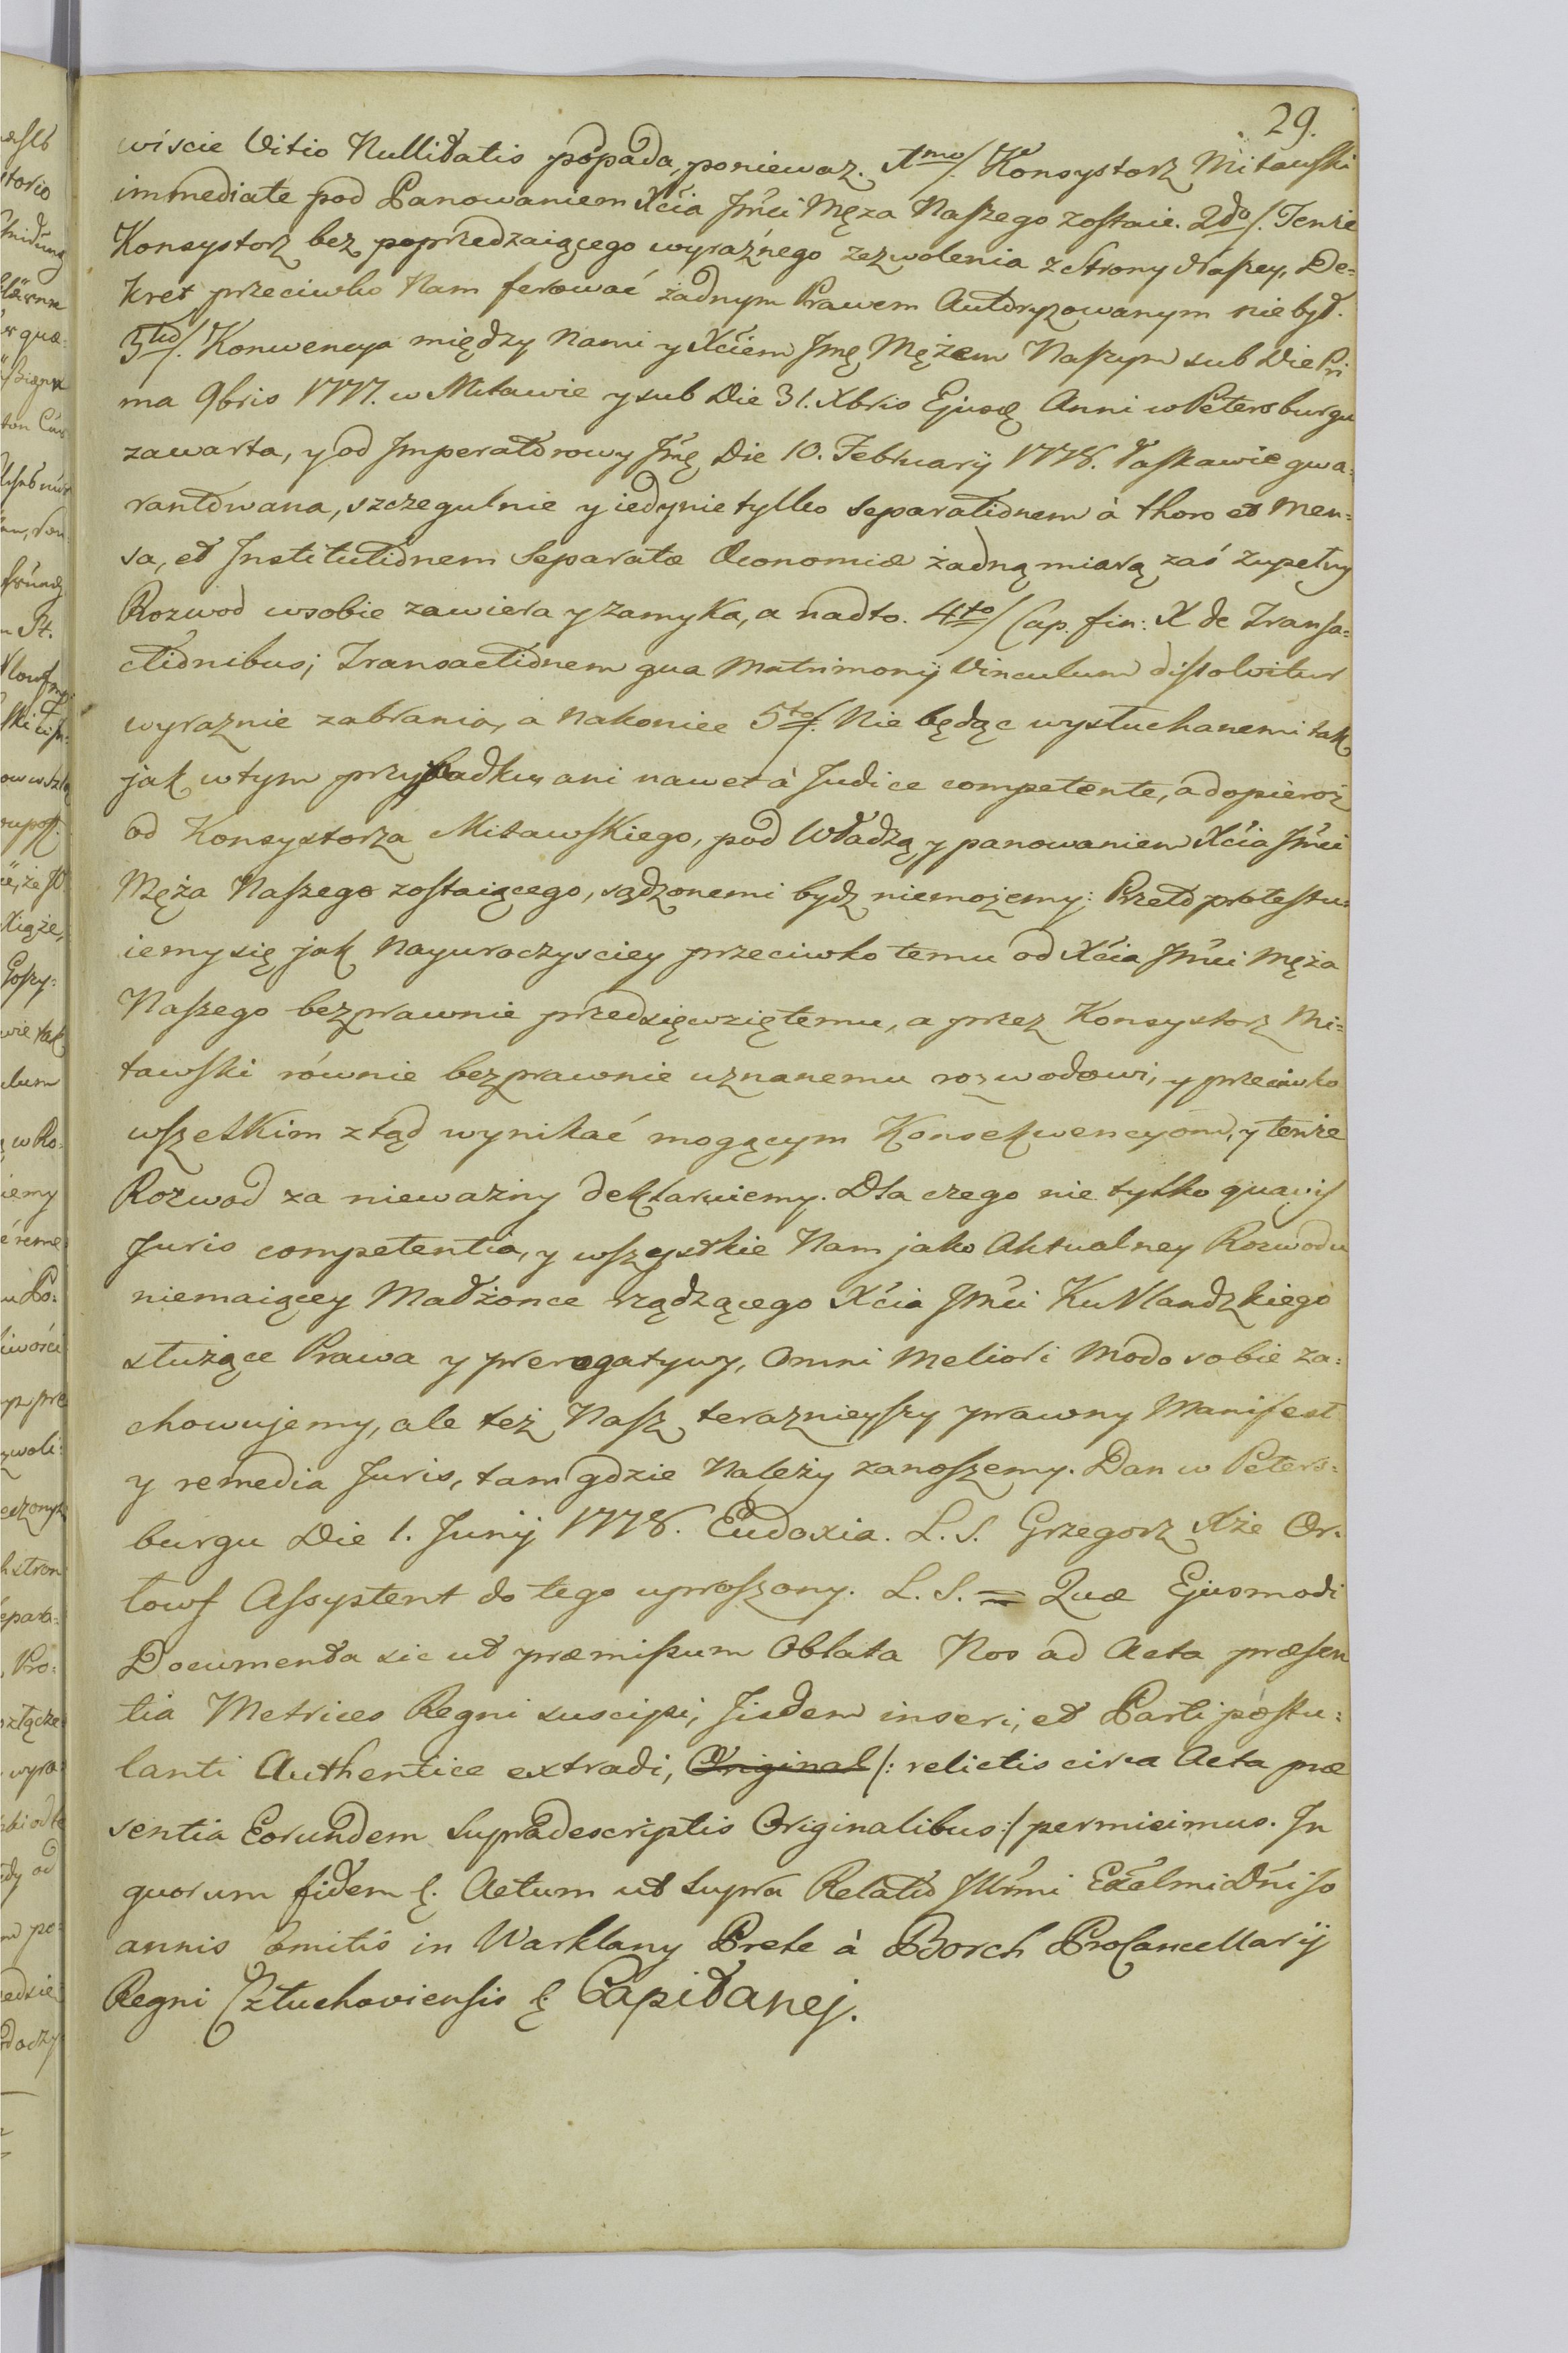 29.
wiście Vitio Nullitatis popada, ponieważ. 1mo/. Konsystorz Mitawski
immediate pod Panowaniem Xcia Jmci Męża Naszego zostaie. 2do/. Tenże
Konsystorz bez poprzedzaiącego wyraźnego zezwolenia z Strony Naszey, De=
kret przeciwko Nam ferować żadnym Prawem Autoryzowanym nie był.
3tio/. Konwencya między Nami y Xciem Jmę Mężem Naszym sub Die Pri
ma 9bris 1777. w Mitawie y sub Die 31. Xbris Ejusd Anni w Petersburgu
zawarta, y od Imperatorowy Jmę Die 10. February 1778. łaskawie gwa=
rantowana, szczegulnie y iedynie tylko separationem à thoro et Men=
sa, et Institutionem Separatæ Œconomiæ żadną miarą zaś zupełny
Rozwod w sobie zawiera y zamyka, a nadto. 4to/ Cap. fin: X. de Transa=
ctionibus; Transactionem qua Matrimonij Vinculum dissolvitur
wyraznie zabrania, a nakoniec 5to/. Nie będąc wysłuchanemi tak
jak w tym przypadku, ani nawet à Judice competente, a dopieroż
od Konsystorza Mitawskiego, pod Władzą y panowaniem Xcia Jmci
Męża Naszego zostaiącego, sądzonemi bydz niemożemy: Przeto protestu=
iemy się jak Nayuroczysciey przeciwko temu od Xcia Jmci Męża
Naszego bezprawnie przedsięwziętemu, a przez Konsystorz Mi=
tawski równie bezprawnie uznanemu rozwodowi, y przeciwko
wszelkim ztąd wynikać mogącym Konsekwencyom, y tenże
Rozwod za nieważny deklaruiemy. Dla czego nie tylko quævis
Juris competentia, y wszystkie Nam jako Aktualney Rozwodu
niemaiącey Małżonce rządzącego Xcia Jmci Kurlandzkiego
służące Prawa y prerogatywy, Omni Meliori Modo sobie za=
chowujemy, ale też Nasz terażnieyszy prawny Manifest
y remedia Juris, tam gdzie Należy zanoszemy. Dan w Peters=
burgu Die 1. Junij 1778. Eudoxia. L. S. Grzegorz Xże Or=
łowf Assystent do tego uproszony. L. S. = Quæ Ejusmodi
Documenta sic ut præmissum Oblata Nos ad Acta præsen
tia Metrices Regni suscipi, Iisdem inseri, et Parti postu=
lanti Authentice extradi, Original /: relictis circa Acta præ
sentia Eorundem Supradescriptis Originalibus :/ permisimus. In
quorum fidem &. Actum ut Supra Relatio Illrmi Excelmi Dni Jo
annis Comitis in Warklany Prete à Borch ProCancellarij
Regni Człuchoviensis & Capitanej.